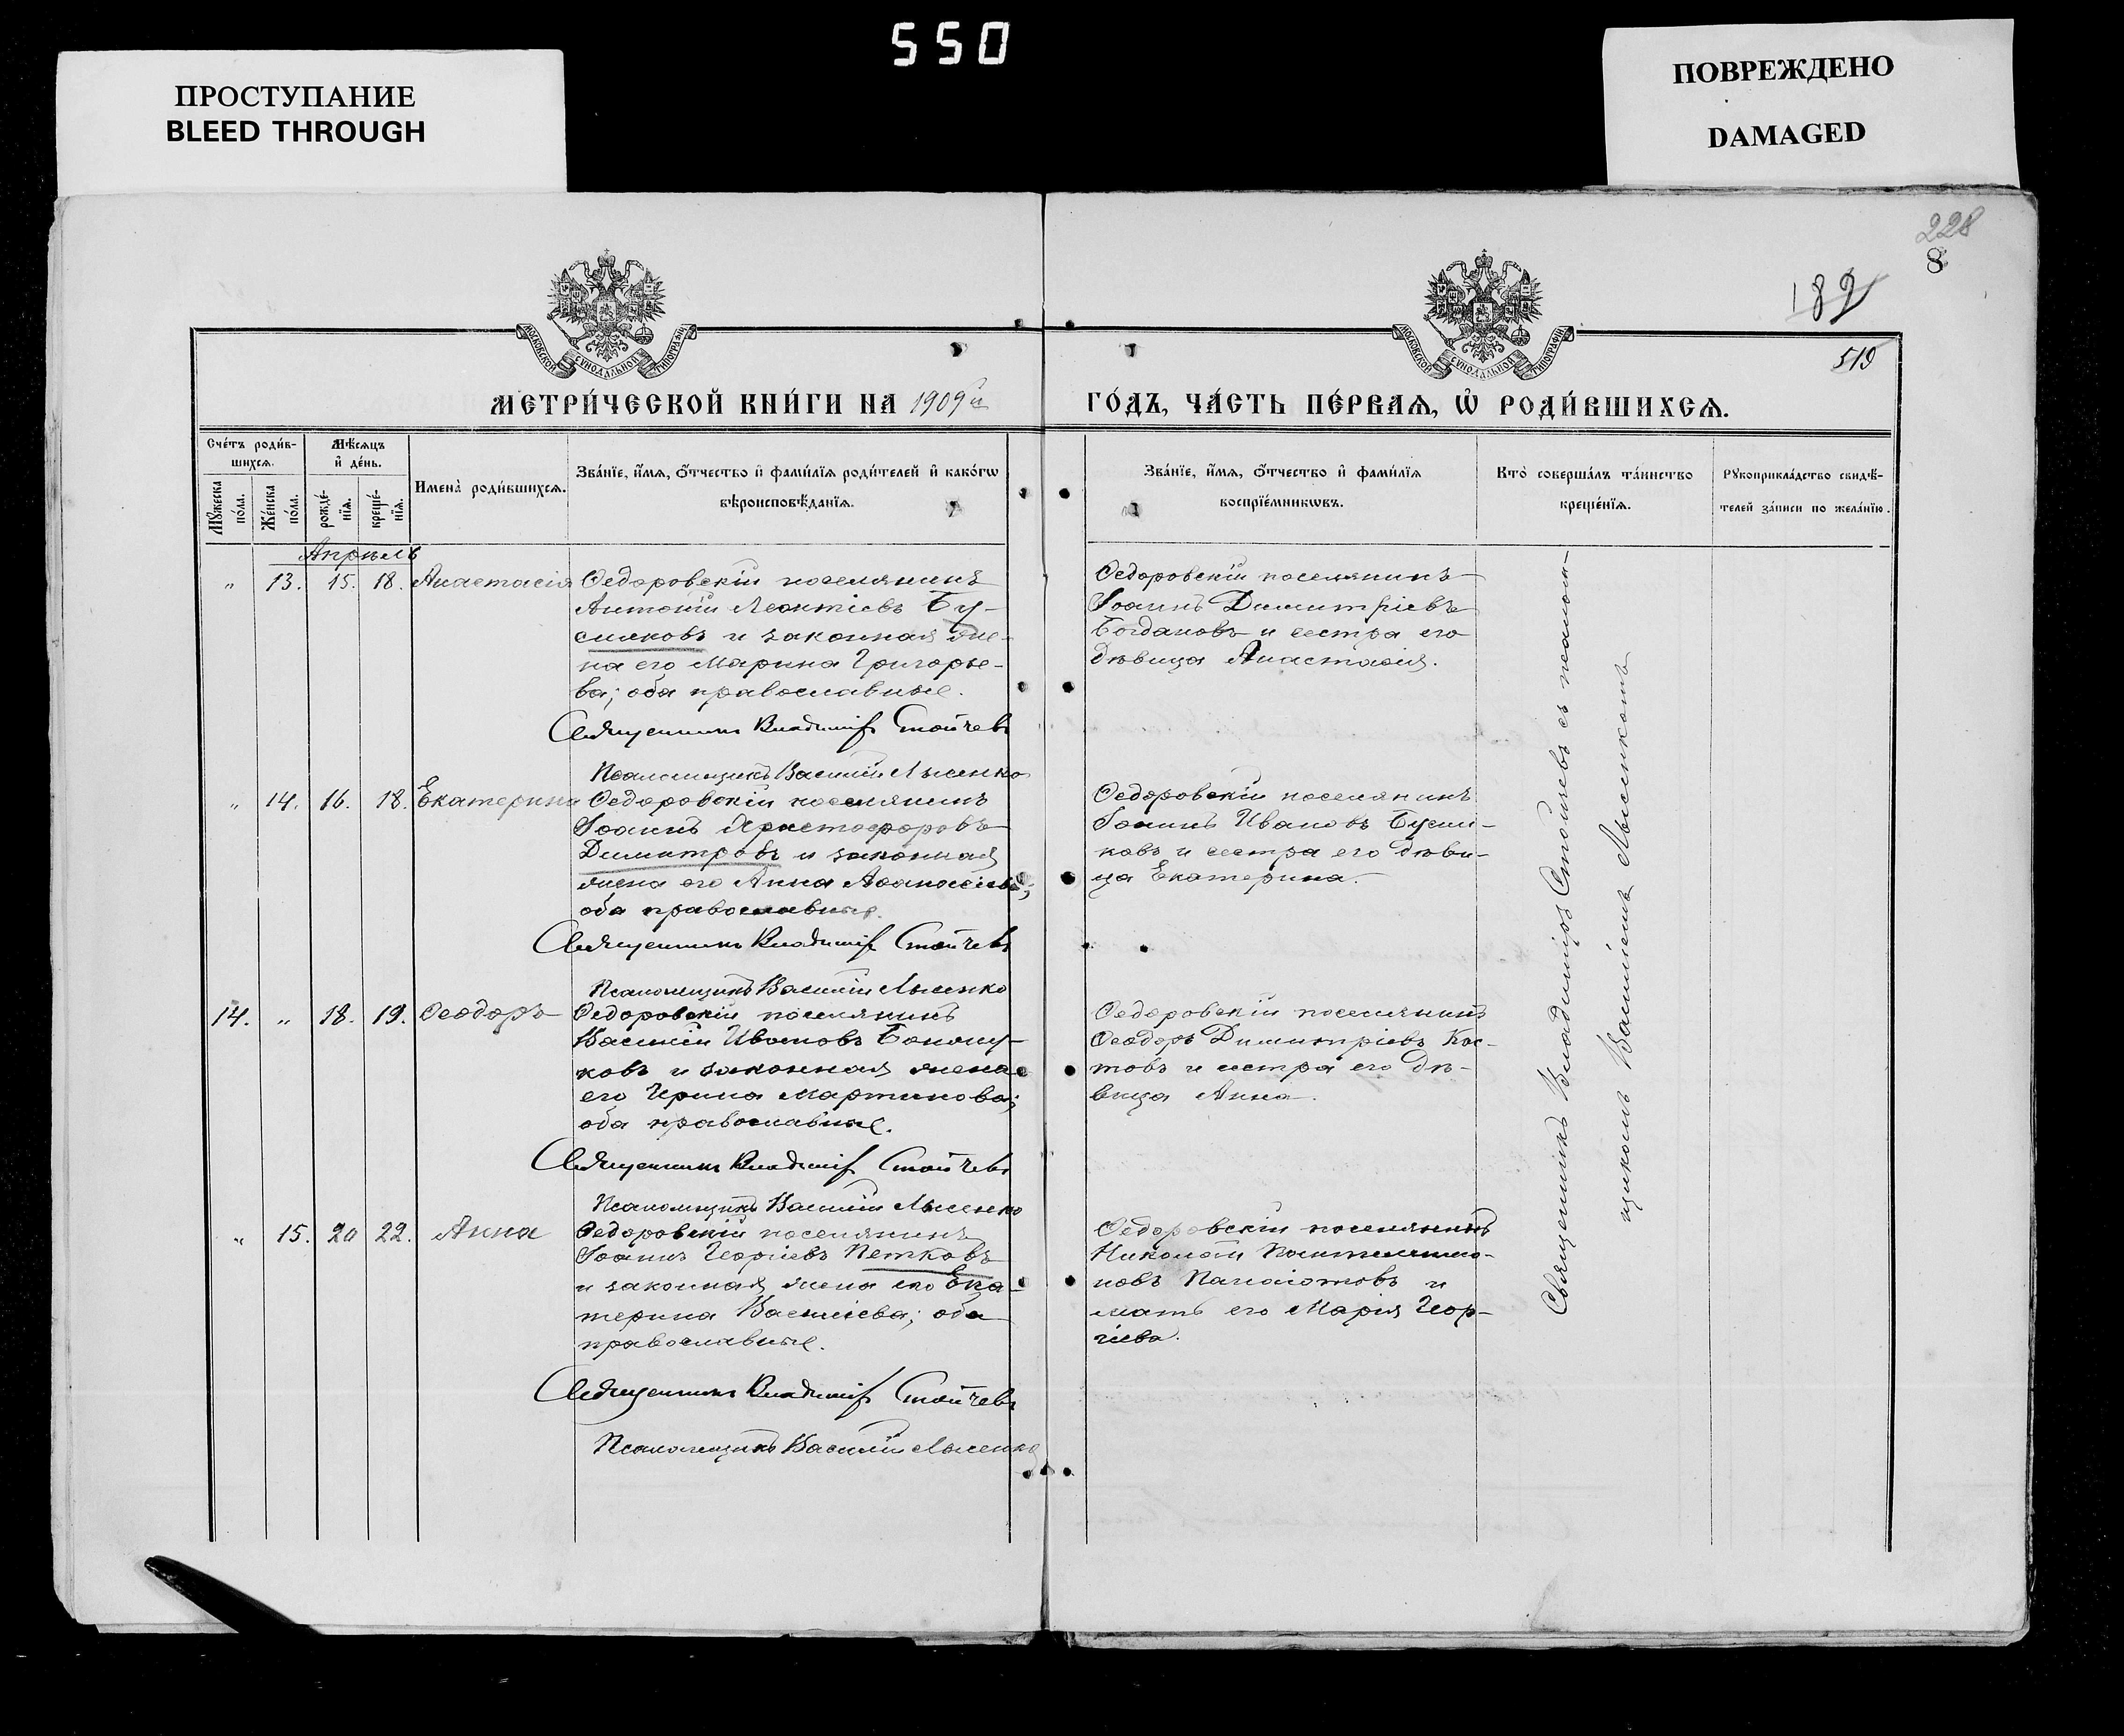 550
ПРОСТУПАНИЕ
BLEED THROUGH
ПОВРЕЖДЕНО
DAMAGED
228
8
182
519
МОСКОВСКОЙ СУНОДАЛЬНОЙ ТИПОГРАФІИ
МОСКОВСКОЙ СУНОДАЛЬНОЙ ТИПОГРАФІИ
МЕТРИ́ЧЕСКОЙ КНИ́ГИ НА 1909й
ГО́ДЪ, ЧА́СТЬ ПЕ́РВАѦ, Ѡ҆ РОДИ́ВШИХСѦ.
Сче́тъ роди́в-
шихсѧ.
Мѣ́сѧцъ
и҆ де́нь.
Мꙋ́жеска
по́ла.
Же́нска
по́ла.
рожде́-
нїѧ.
креще́-
нїѧ.
Имена̀ роди́вшихсѧ.
Зва́нїе, и҆́мѧ, ѻ҆́тчество и҆ фами́лїѧ роди́телей и҆ како́гѡ
вѣроисповѣ́данїѧ.
Зва́нїе, и҆́мѧ, ѻ҆́тчество и҆ фами́лїѧ
воспрїе́мникѡвъ.
Кто̀ соверша́лъ та́инство
креще́нїѧ.
Рꙋкоприкла́дство свидѣ́-
телей за́писи по жела́нїю.
Апрѣль
„ 13. 15. 18. Анастасія
Ѳедоровскій поселянинъ
Антоній Леонтіевъ Бу-
сликовъ и законная же-
на его Марина Григорье-
ва; оба православные.
Священникъ Владиміръ Стойчевъ
Псаломщикъ Василій Лысенко
Ѳедоровскій поселянинъ
Іоаннъ Димитріевъ
Богдановъ и сестра его
дѣвица Анастасія.
„ 14. 16. 18. Екатерина
Ѳедоровскій поселянинъ
Іоаннъ Христофоровъ
Димитровъ и законная
жена его Анна Аѳанасіева;
оба православные.
Священникъ Владиміръ Стойчевъ
Псаломщикъ Василій Лысенко
Ѳедоровскій поселянинъ
Іоаннъ Ивановъ Бусли-
ковъ и сестра его дѣви-
ца Екатерина.
14. „ 18. 19. Ѳеодоръ
Ѳедоровскій поселянинъ
Василій Ивановъ
ковъ и законная жена
его Ирина Мартинова;
оба православные.
Священникъ Владиміръ Стойчевъ
Псаломщикъ Василій Лысенко
Ѳедоровскій поселянинъ
Ѳеодоръ Димитріевъ Кос-
товъ и сестра его дѣ-
вица Анна.
„ 15. 20 22. Анна
Ѳедоровскій поселянинъ
Іоаннъ Георгіевъ Петковъ
и законная жена его Ека-
терина Василіева; оба
православные.
Священникъ Владиміръ Стойчевъ
Псаломщикъ Василій Лысенко
Ѳедоровскій поселянинъ
Николай Пантелеимо-
новъ Панаіотовъ и
мать его Марія Геор-
гіева.
Священникъ Владиміръ Стойчевъ съ псалом-
щикомъ Василіемъ Лысенкомъ